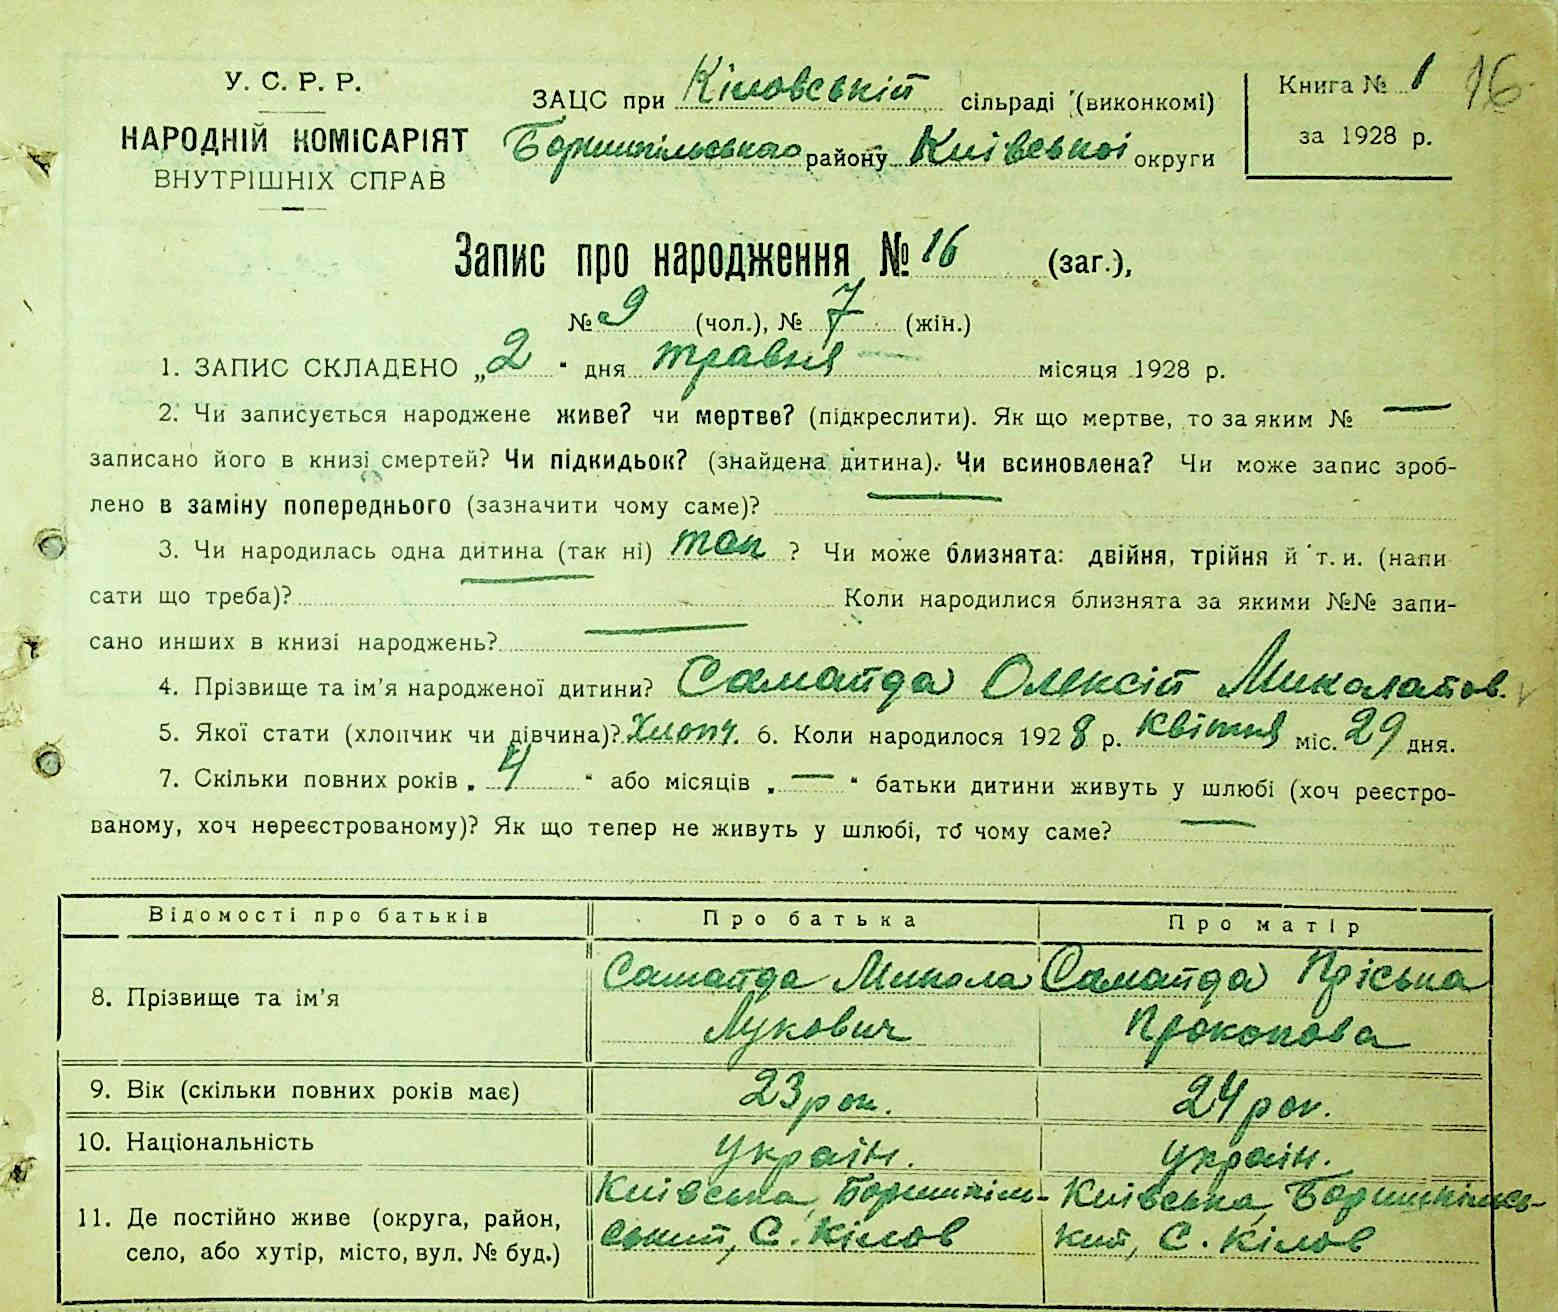 У. С. Р. Р.
НАРОДНІЙ КОМІСАРІЯТ
ВНУТРІШНІХ СПРАВ
ЗАЦС при Кіловській сільраді (виконкомі)
Бориспільського району Київської округи
Книга № 1 16
за 1928 р.
Запис про народження № 16 (заг.),
№ 9 (чол.), № 7 (жін.)
1. ЗАПИС СКЛАДЕНО „2" дня травня місяця 1928 р.
2. Чи записується народжене живе? чи мертве? (підкреслити). Як що мертве, то за яким № —
записано його в книзі смертей? Чи підкидьок? (знайдена дитина). Чи всиновлена? Чи може запис зроб-
лено в заміну попереднього (зазначити чому саме)? —
3. Чи народилась одна дитина (так ні) так ? Чи може близнята: двійня, трійня й т. и. (напи
сати що треба)? — Коли народилися близнята за якими №№ запи-
сано инших в книзі народжень? —
4. Прізвище та ім'я народженої дитини? Самайда Олексій Миколайов.
5. Якої стати (хлопчик чи дівчина)? Хлопч. 6. Коли народилося 1928 р. Квітня міс. 29 дня.
7. Скільки повних років „ 4 " або місяців „ — " батьки дитини живуть у шлюбі (хоч реєстро-
ваному, хоч нереєстрованому)? Як що тепер не живуть у шлюбі, то чому саме? —
Відомості про батьків Про батька Про матір
8. Прізвище та ім'я
Самайда Микола
Лукович
Самайда Пріська
Прокопова
9. Вік (скільки повних років має) 23 рок. 24 рок.
10. Національність україн. україн.
11. Де постійно живе (округа, район,
село, або хутір, місто, вул. № буд.)
Київська, Бориспіль-
ський, С. Кілов
Київська, Бориспільсь-
кий, С. Кілов